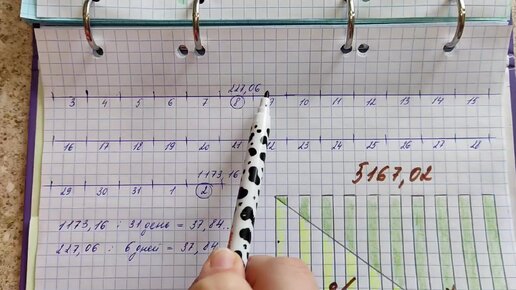 227,06
3 4 5 6 7 8 9 10 11 12 13 14 15
16 17 18 19 20 21 22 23 24 25 26 27 28
1173,16
29 30 31 1 2
5167,02
1173,16 : 31 день = 37,84
227,06 : 6 дней = 37,84
%